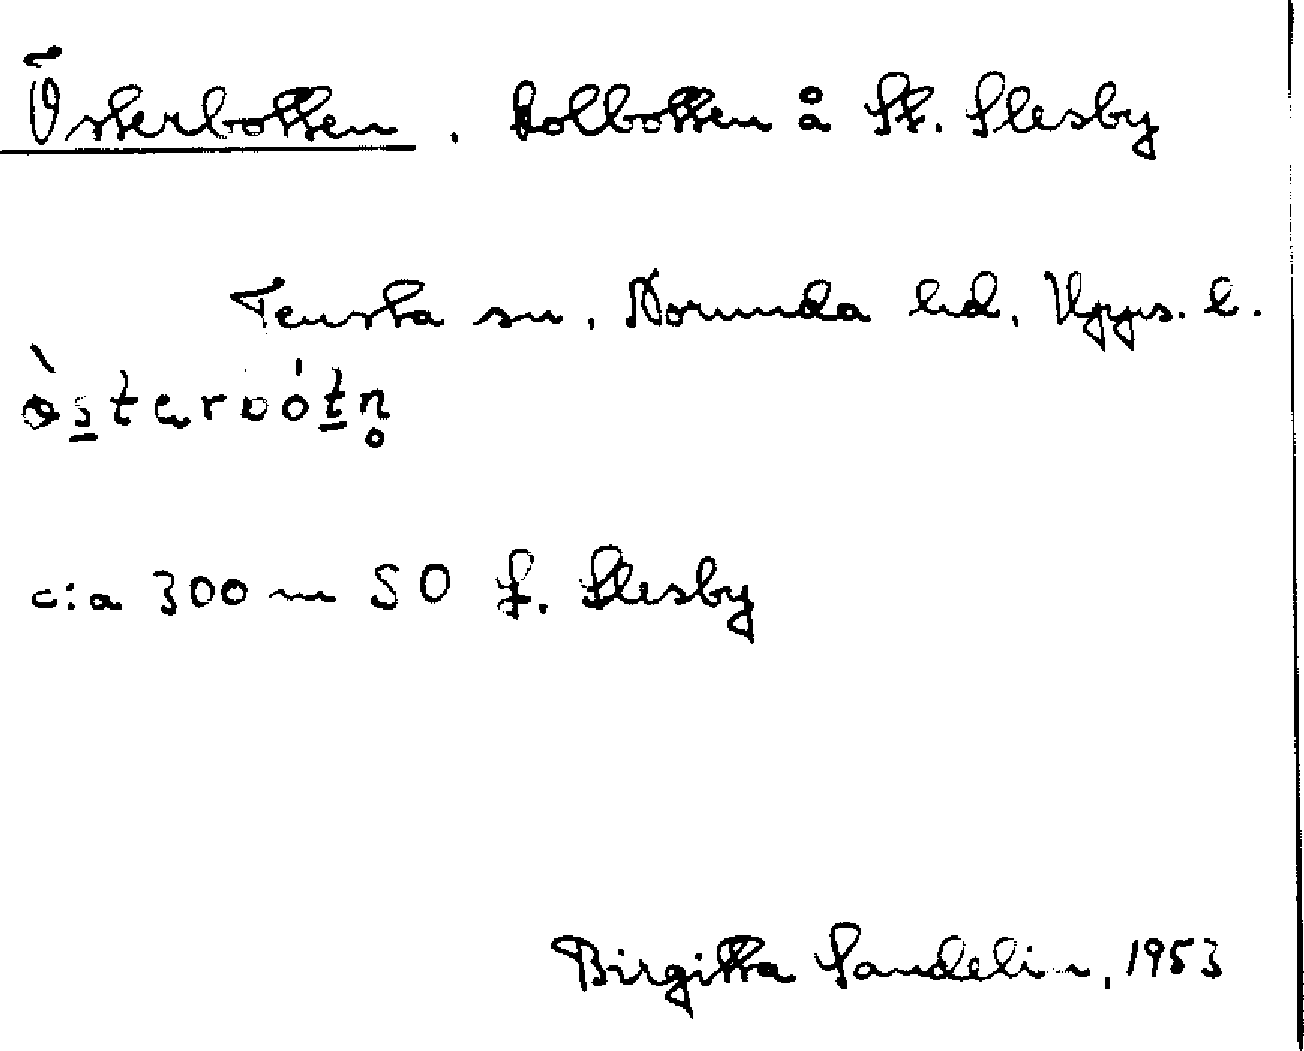 Österbotten. kolbotten å St. Slesby
Tensta sn, Norunda hd, Upps. l.
c:a 300 m SO f. Slesby
Birgitta Sandelin, 1953